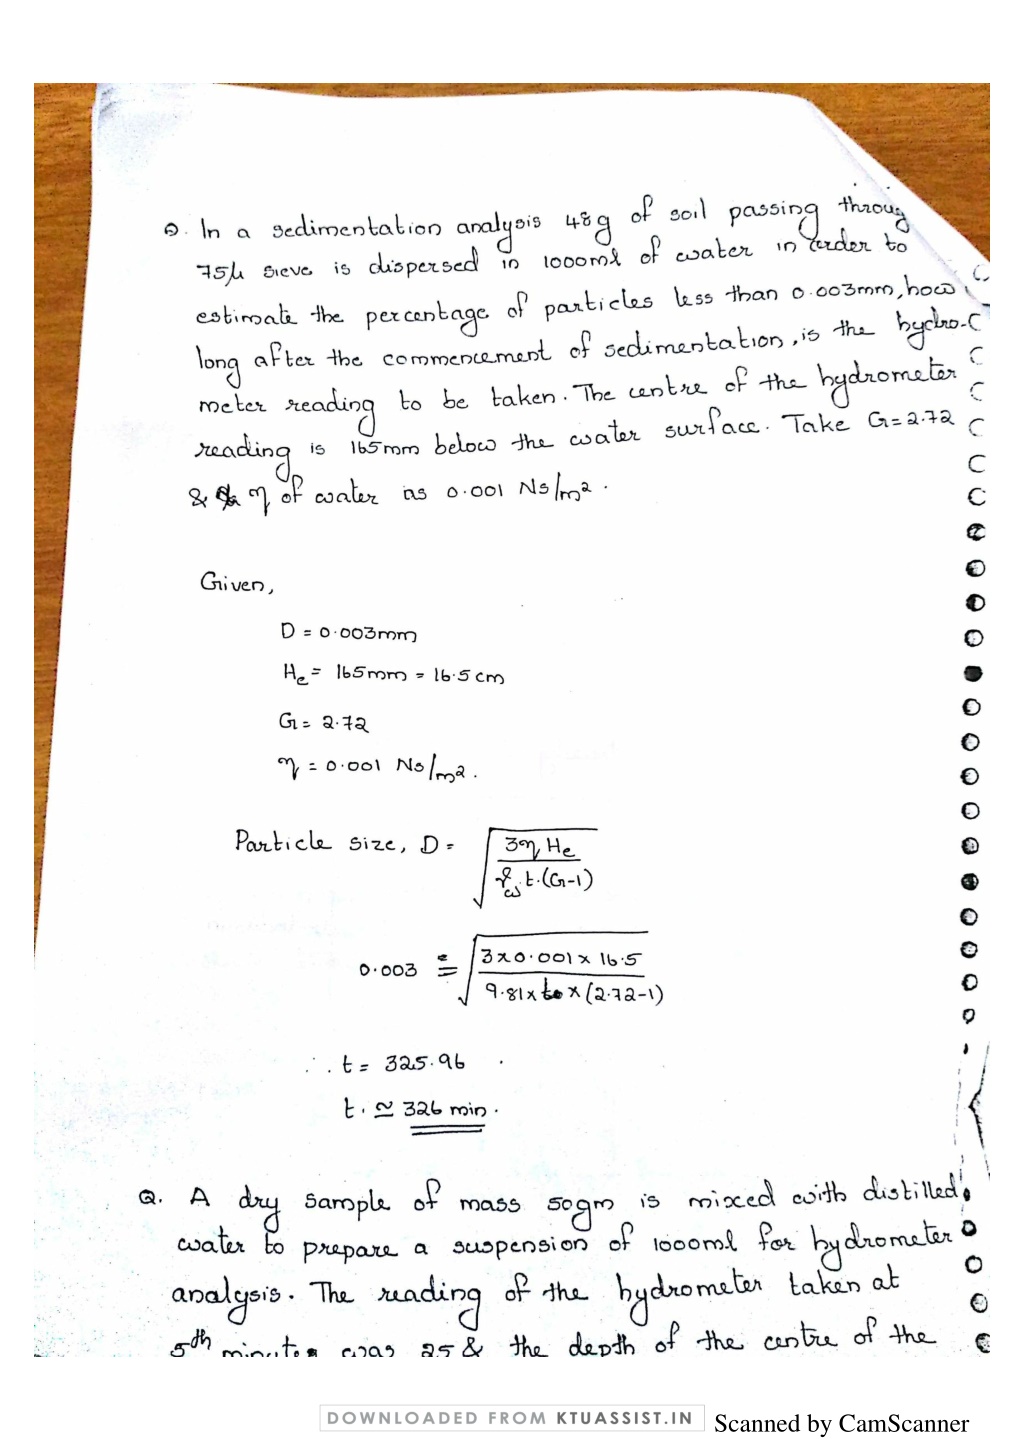 Q. In a sedimentation analysis 48g of soil passing throug
75μ sieve is dispersed in 1000ml of water in order to
estimate the percentage of particles less than 0.003mm, how
long after the commencement of sedimentation, is the hydro-
meter reading to be taken. The centre of the hydrometer
reading is 165mm below the water surface. Take G=2.72
& η of water as 0.001 Ns/m².
Given,
D = 0.003mm
He = 165mm = 16.5cm
G = 2.72
η = 0.001 Ns/m².
Particle size, D = √(3η He / γω t.(G-1))
0.003 = √(3x0.001x 16.5 / 9.81x t x (2.72-1))
∴ t = 325.96
t. ≃ 326 min.
Q. A dry sample of mass 50gm is mixed with distilled
water to prepare a suspension of 1000ml for hydrometer
analysis. The reading of the hydrometer taken at
5th minutes was 25 & the depth of the centre of the
DOWNLOADED FROM KTUASSIST.IN
Scanned by CamScanner